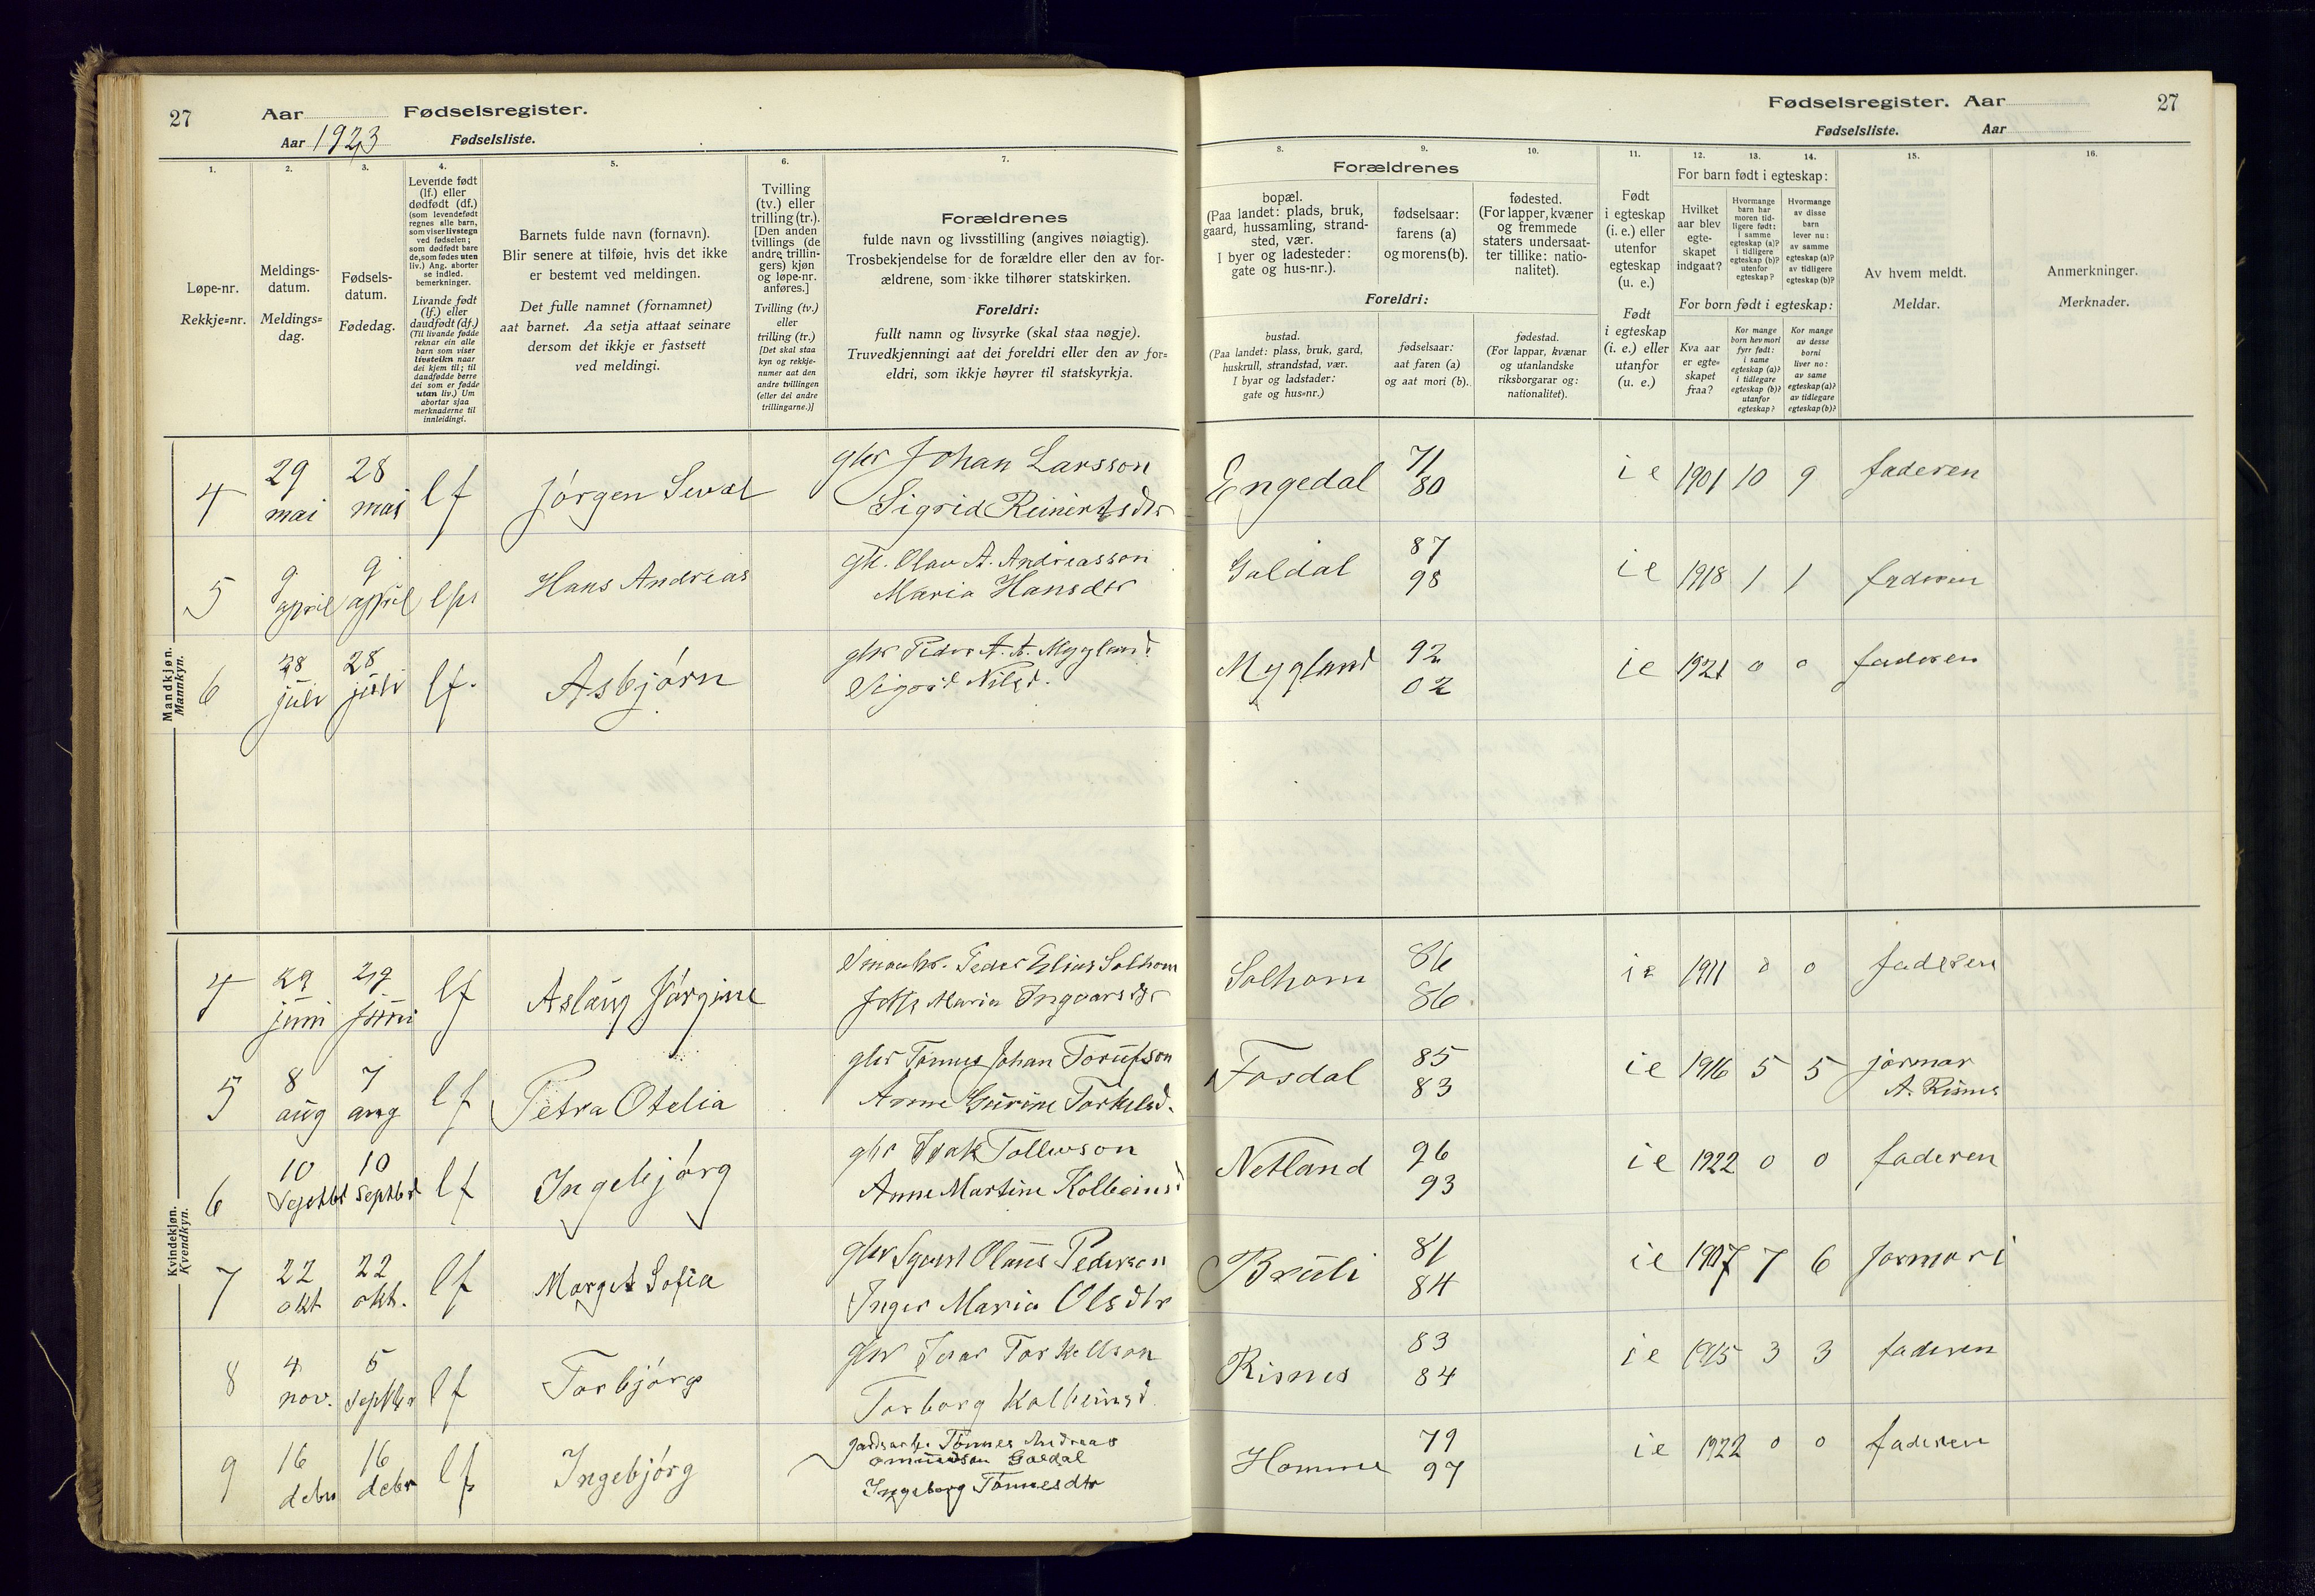 27 Aar Fødselsregister.
Aar 1923 Fødselsliste.
1. 2. 3. 4. 5. 6. 7.
Løpe-nr.
Rekkje=nr.
Meldings-
datum.
Meldings=
dag.
Fødsels-
datum.
Fødedag.
Levende født
(lf.) eller
dødfødt (df.)
(som levendefødt
regnes alle barn,
som viser livstegn
ved fødselen;
som dødfødt bare
de, som fødes uten
liv.) Ang. aborter
se indled.
bemerkninger.
Livande født
(lf.) eller
daudfødt (df.)
(Til livande fødde
reknar ein alle
barn som viser
livsteikn naar
dei kjem til; til
daudfødde berre
dei som er fødde
utan liv.) Um
abortar sjaa
merknaderne til
innleidingi.
Barnets fulde navn (fornavn).
Blir senere at tilføie, hvis det ikke
er bestemt ved meldingen.
Det fulle namnet (fornamnet)
aat barnet. Aa setja attaat seinare
dersom det ikkje er fastsett
ved meldingi.
Tvilling
(tv.) eller
trilling (tr.).
[Den anden
tvillings (de
andre trillin-
gers) kjøn
og løpe-nr.
anføres.]
Tvilling (tv.)
eller
trilling (tr.)
[Det skal staa
kyn og rekkje-
numer aat den
andre tvillingen
(eller dei andre
trillingarne.)]
Forældrenes
fulde navn og livsstilling (angives nøiagtig).
Trosbekjendelse for de forældre eller den av for-
ældrene, som ikke tilhører statskirken.
Foreldri:
fullt namn og livsyrke (skal staa nøgje).
Truvedkjenningi aat dei foreldri eller den av for=
eldri, som ikkje høyrer til statskyrkja.
Mandkjøn.
Mannkyn.
4 29 mai 28 mai lf Jørgen Sival gbr Johan Larsson
Sigrid Reinertsdtr
5 9 april 9 april Hans Andreas Olav A. Andreasson
Maria Hansdtr
6 28 juli 28 juli lf. Asbjørn gbr Peder A. A. Mygland
Sigrid Nilsd.
Kvindekjøn.
Kvendkyn.
4 29 juni 29 juni lf Aslaug Jørgine Peder Elias Solhom
Maria Ingvarsdtr
5 8 aug 7 aug lf Petra Otelia gbr Tønnes Johan
Anne Gurine Torkelsd.
6 10 Septbr 10 Septbr lf Ingebjørg gbr Isak Tollevson
Anne Martine Kolbeinsd
7 22 okt 22 okt. lf Margit Sofia gbr Olaus Pederson
Inger Maria Olsdtr
8 4 nov. 5 Septbr lf Torbjørg gbr Ivar Torkellson
Torborg Kolbeinsd
9 16 debr 16 debr lf Ingebjørg Tønnes Andreas
Omundson Goldal
Ingeborg Tønnesdtr
Fødselsregister. Aar 27
Fødselsliste. Aar
8. 9. 10. 11. 12. 13. 14. 15. 16.
Forældrenes
bopæl.
(Paa landet: plads, bruk,
gaard, hussamling, strand-
sted, vær.
I byer og ladesteder:
gate og hus-nr.).
fødselsaar:
farens (a)
og morens (b).
fødested.
(For lapper, kvæner
og fremmede
staters undersaat-
ter tillike: natio-
nalitet).
Foreldri:
bustad.
(Paa landet: plass, bruk, gard,
huskrull, strandstad, vær.
I byar og ladstader:
gate og hus=nr.)
fødselsaar:
aat faren (a)
og aat mori (b).
fødestad.
(For lappar, kvænar
og utanlandske
riksborgarar og:
nationalitet).
Født
i egteskap
(i. e.) eller
utenfor
egteskap
(u. e.)
Født
i egteskap
(i. e.) eller
utanfor
(u. e.)
For barn født i egteskap:
Hvilket
aar blev
egte-
skapet
indgaat?
Hvormange
barn har
moren tid-
ligere født:
i samme
egteskap (a)?
i tidligere
egteskap (b)?
utenfor
egteskap?
Hvormange
av disse
barn
lever nu:
av samme
egteskap (a)?
av tidligere
egteskap (b)?
For born født i egteskap:
Kva aar
er egte=
skapet
fraa?
Kor mange
born hev mori
fyrr født:
i same
egteskap (a)?
i tidlegare
egteskap (b)?
utanfor
egteskap?
Kor mange
av desse
borni
liver no:
av same
egteskap (a)?
av tidlegare
egteskap (b)?
Av hvem meldt.
Meldar.
Anmerkninger.
Merknader.
Engedal 71 80 i e 1901 10 9 faderen
Galdal 87 98 i e 1918 1 1 faderen
Mygland 92 02 i e 1921 0 0 faderen
Solhom 86 86. i e 1911 0 0 faderen
Fosdal 85 83 i e 1916 5 5 jormor
A. Risnes
Netland 96 93 i e 1922 0 0 faderen
Bruli 81 84 i e 1907 7 6 jormori
Risnes 83 84 i e 1915 3 3 faderen
Homme 79 97 i e 1922 0 0 faderen